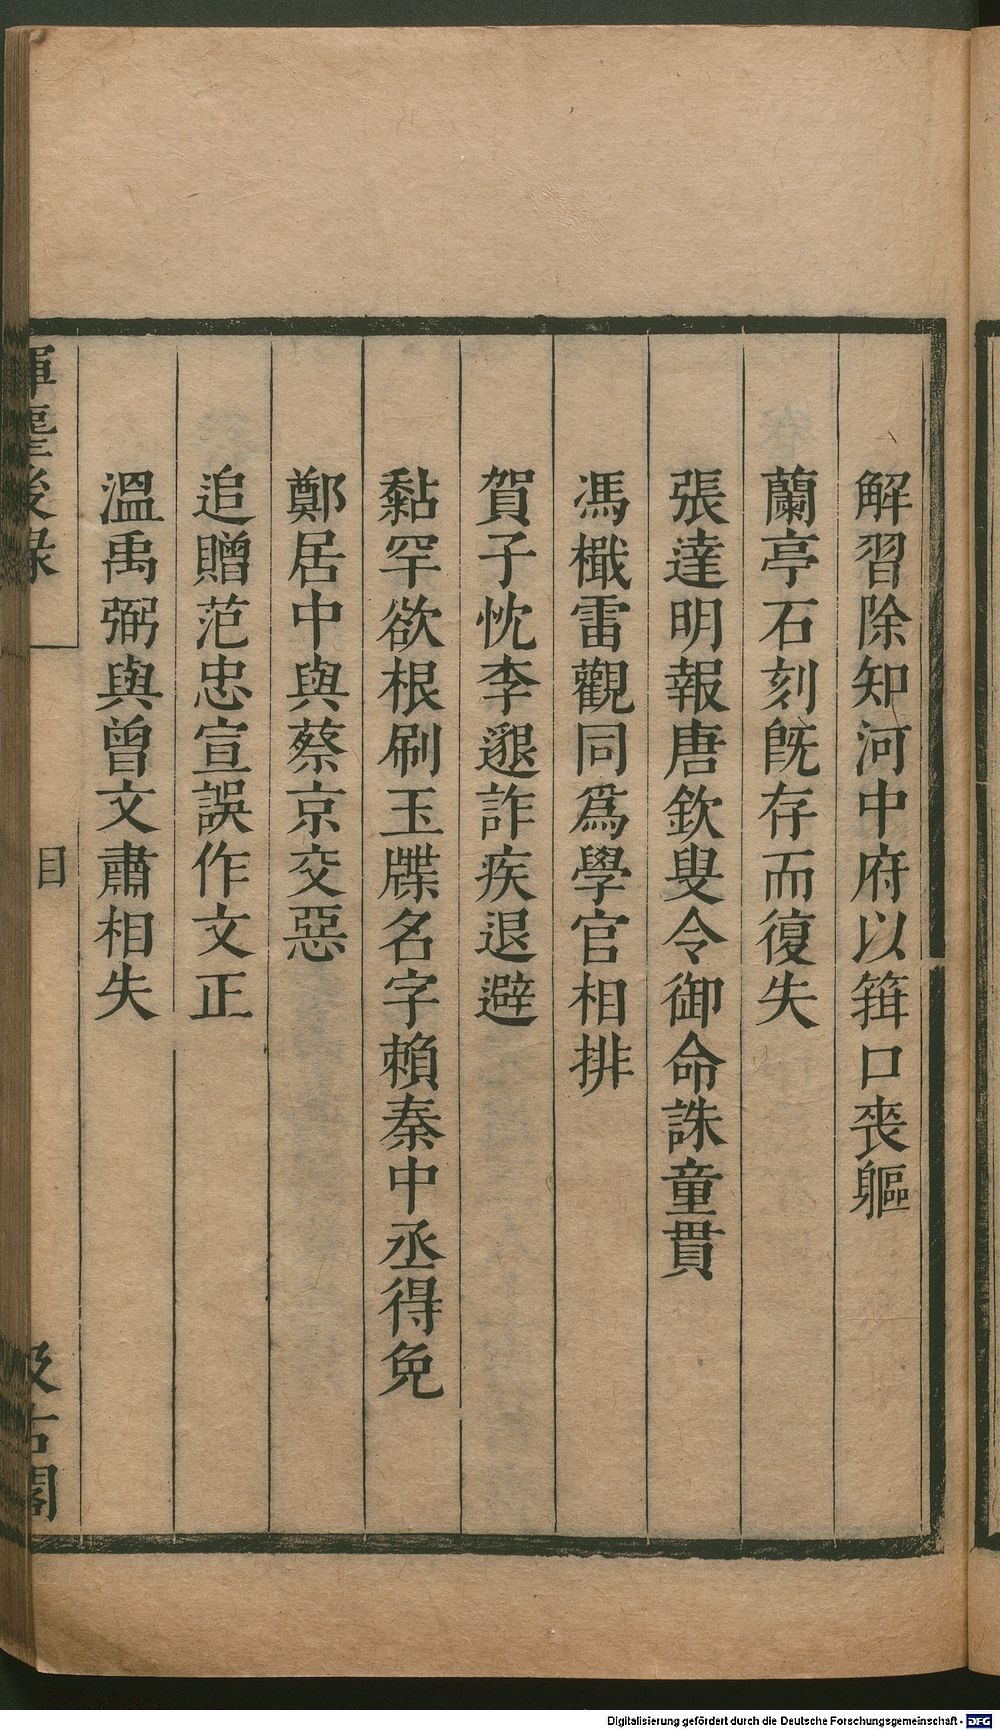 解習除知河中府以箝口喪軀
蘭亭石刻旣存而復失
張達明報唐欽叟令御命誅童貫
馮檝雷觀同爲學官相排
賀子忱李邈詐疾退避
黏罕欲根刷玉牒名字賴秦中丞得免
鄭居中與蔡京交惡
追贈范忠宣誤作文正
溫禹弼與曾文肅相失
揮麈後錄
目
汲古閣
Digitalisierung gefördert durch die Deutsche Forschungsgemeinschaft - DFG